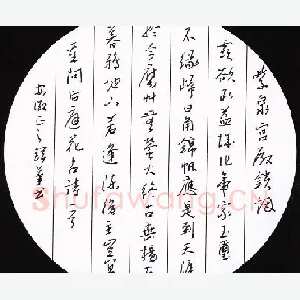 紫泉宫殿鎖烟
霞欲取蕪城作帝家玉璽
不緣歸日角錦帆應是到天涯
於今腐草無螢火終古垂楊有
暮鴉地下若逢陳后主豈宜
重問后庭花
安徽
Shufawang.CN